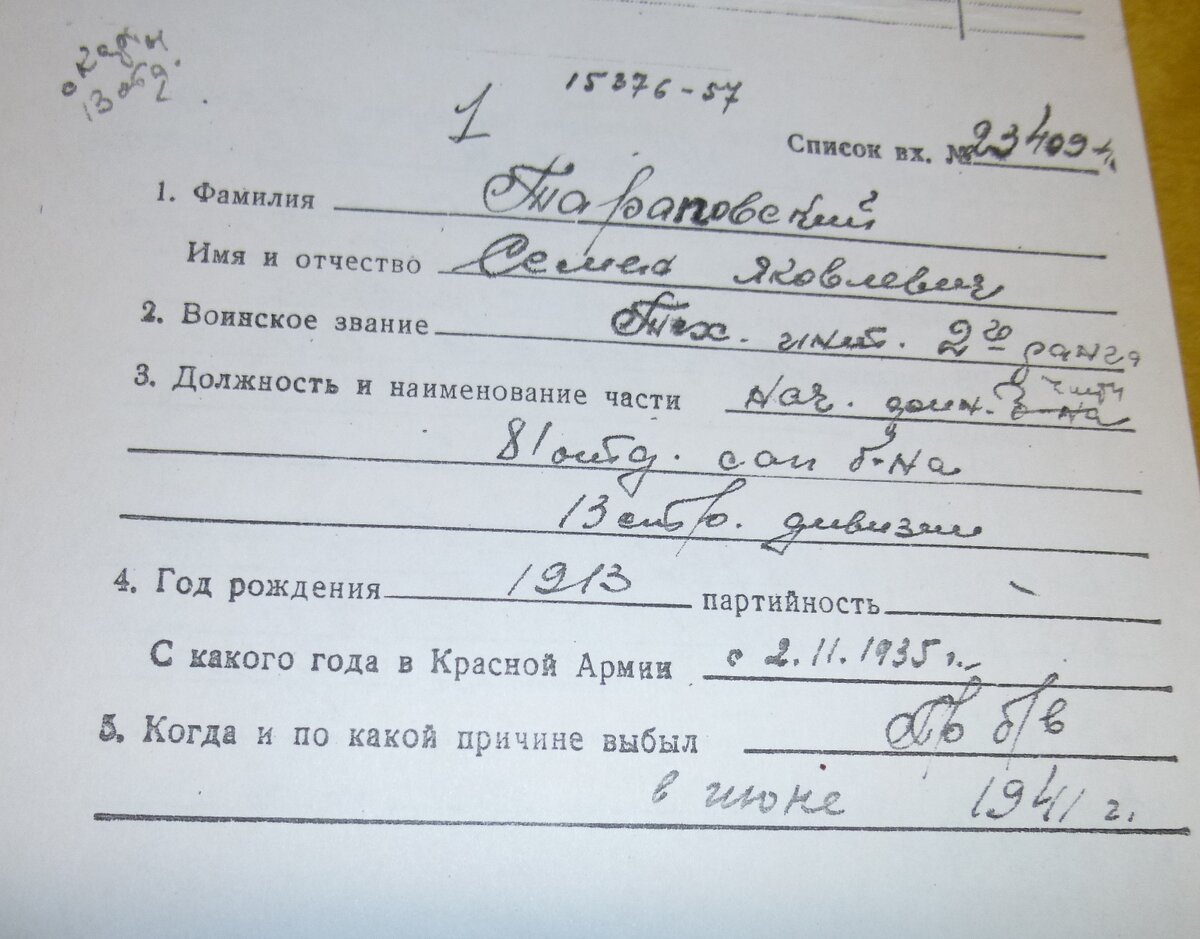 13
15376-57
1
Список вх. № 23409
1. Фамилия Тараповский
Имя и отчество Семен Яковлевич
2. Воинское звание Тех. инт. 2го ранга
3. Должность и наименование части нач. б-на части
81 отд. сап б-на
13 стр. дивизии
4. Год рождения 1913 партийность —
С какого года в Красной Армии с 2.11.1935 г.
5. Когда и по какой причине выбыл пр б/в
в июне 1941 г.